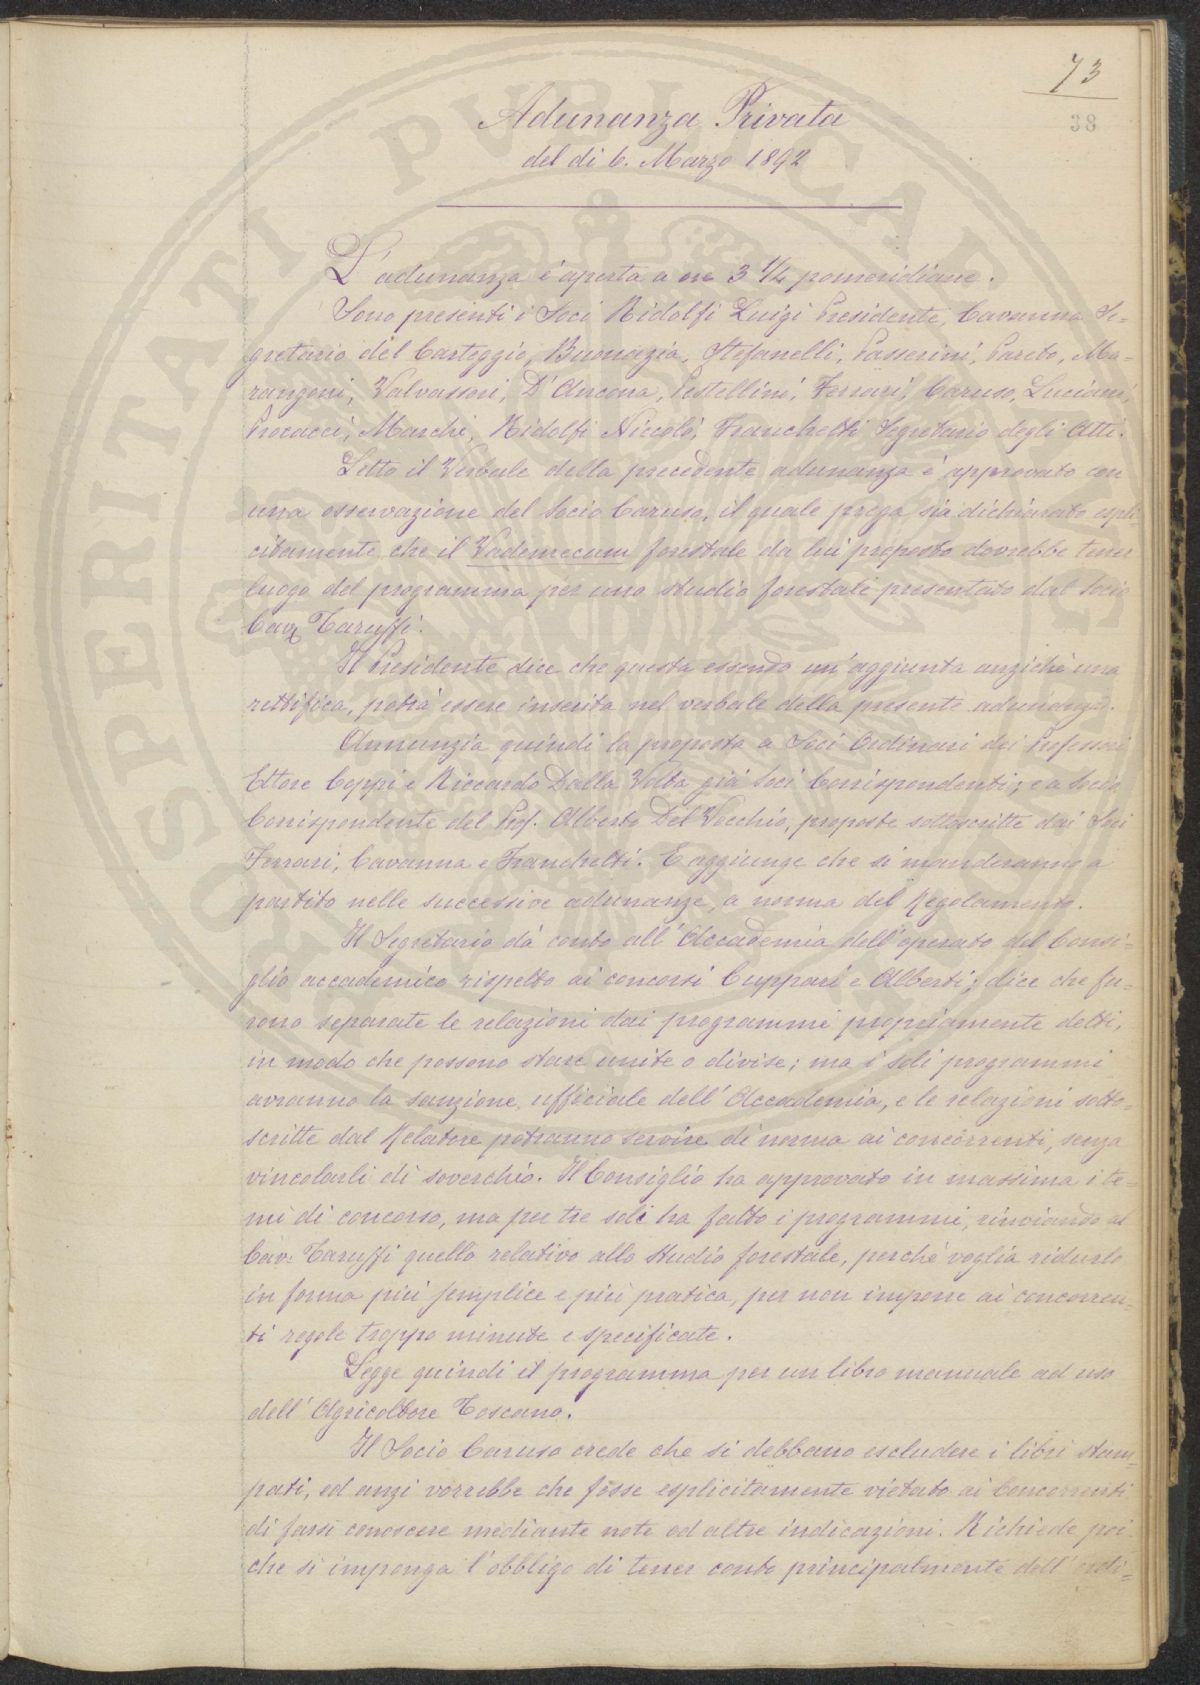 73
38
Adunanza Privata
del di 6. Marzo 1892
L'adunanza é aperta a ore 3 1/4 pomeridiane.
Sono presenti i Soci Ridolfi Luigi Presidente, Cavanna Se=
gretario del Carteggio, Buonazia, Stefanelli, Passerini, Pareto, Ma=
rangoni, Valvassori, D'Ancona, Pestellini, Ferrari, Caruso, Luciani,
Procacci, Marchi, Ridolfi Niccolò, Franchetti Segretario degli Atti.
Letto il Verbale della precedente adunanza é approvato con
una osservazione del Socio Caruso, il quale prega sia dichiarato espli-
citamente che il Vademecum forestale da lui proposto dovrebbe tener
luogo del programma per uno studio forestale presentato dal Socio
Cav. Taruffi.
Il Presidente dice che questa essendo un'aggiunta anziché una
rettifica, potrá essere inserita nel verbale della presente adunanza.
Annunzia quindi la proposta a Soci Ordinari dei Professori
Ettore Coppi e Riccardo Dalla Volta giá Soci Corrispondenti; e a Socio
Corrispondente del Prof. Alberto Del Vecchio, proposte sottoscritte dai Soci
Ferrari, Cavanna e Franchetti. E aggiunge che si manderanno a
partito nelle successive adunanze, a norma del Regolamento.
Il Segretario dá conto all'Accademia dell'operato del Consi=
glio accademico rispetto ai concorsi Cuppari e Alberti; dice che fu=
rono separate le relazioni dai programmi propriamente detti,
in modo che possono stare unite o divise; ma i soli programmi
avranno la sanzione ufficiale dell'Accademia, e le relazioni sotto=
scritte dal Relatore potranno servire di norma ai concorrenti, senza
vincolarli di soverchio. Il Consiglio ha approvato in massima i te=
mi di concorso, ma per tre soli ha fatto i programmi, rinviando al
Cav. Taruffi quello relativo allo studio forestale, perché voglia ridurlo
in forma piú semplice e piú pratica, per non imporre ai concorren=
ti regole troppo minute e specificate.
Legge quindi il programma per un libro manuale ad uso
dell'Agricoltore Toscano.
Il Socio Caruso crede che si debbano escludere i libri stam=
pati, ed anzi vorrebbe che fosse esplicitamente vietato ai Concorrenti
di farsi conoscere mediante note od altre indicazioni. Richiede poi
che si imponga l'obbligo di tener conto principalmente dell'ordi=